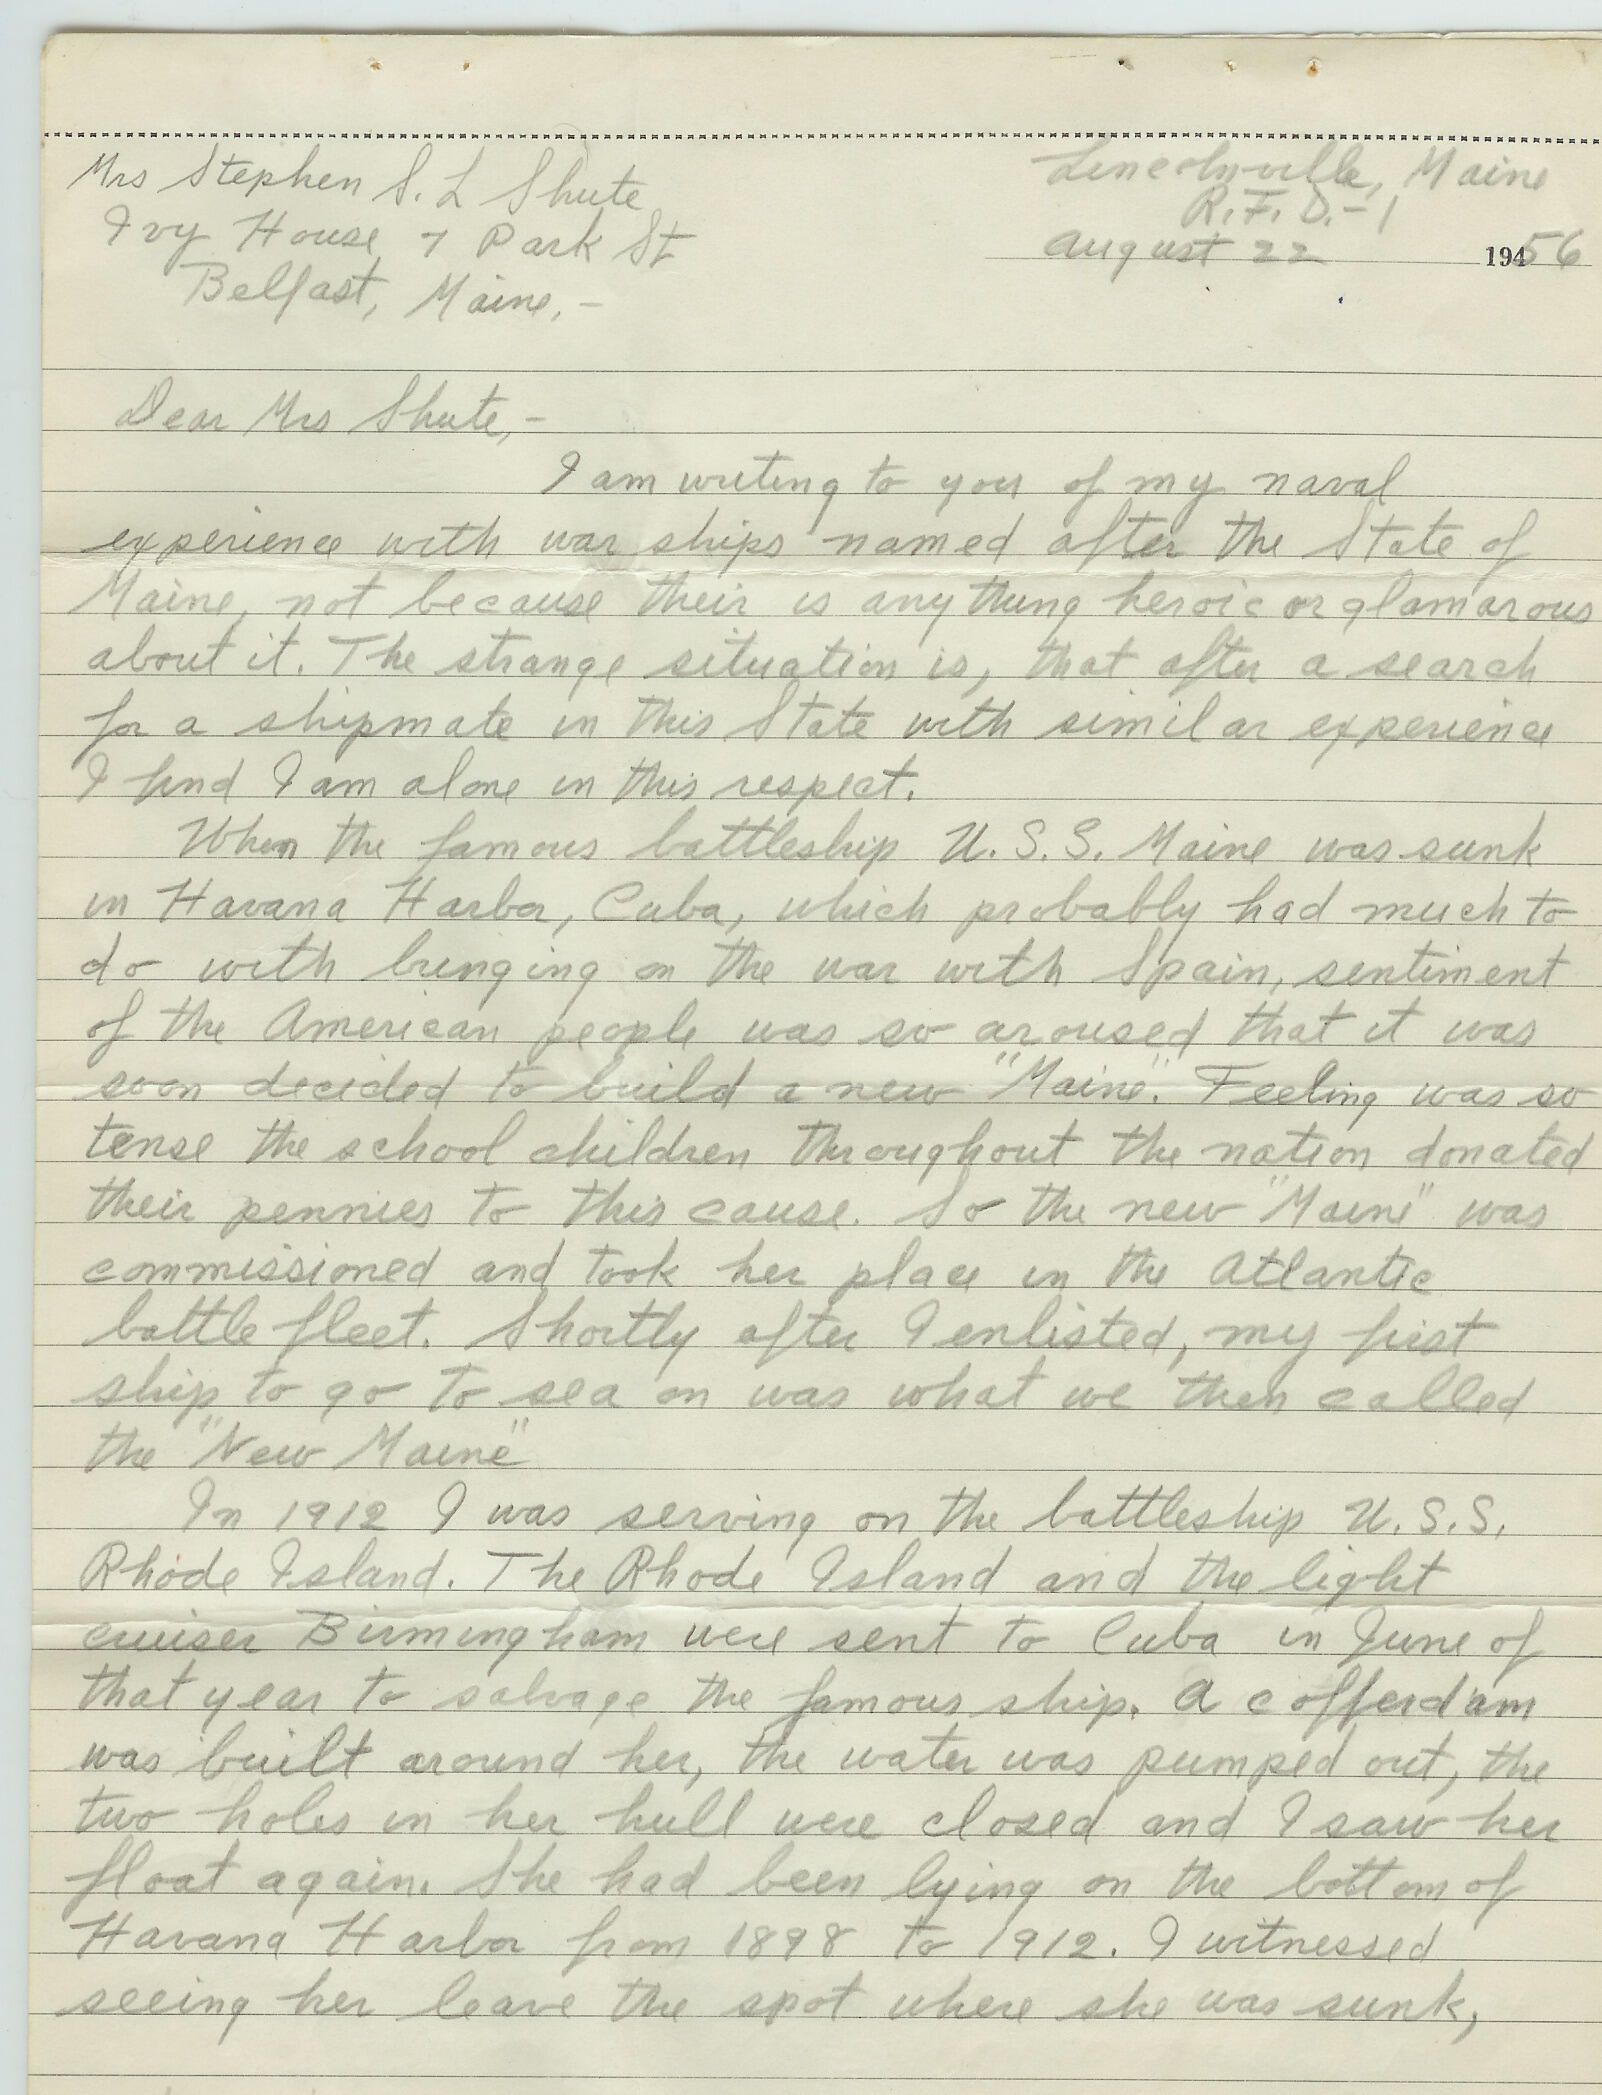 Mrs Stephen S. L Shute
Ivy House 7 Park St
Belfast, Maine, -
Lincolnville, Maine
R. F. D. - 1
August 22 19456
Dear Mrs Shute, -
I am writing to you of my naval
experience with war ships named after the State of
Maine, not because their is any thing heroic or glamarous
about it. The strange situation is, that after a search
for a shipmate in this State with similar experience
I find I am alone in this respect.
When the famous battleship U.S.S. Maine was sunk
in Havana Harbor, Cuba, which probably had much to
do with bringing on the war with Spain, sentiment
of the American people was so aroused that it was
soon decided to build a new "Maine". Feeling was so
tense the school children throughout the nation donated
their pennies to this cause. So the new "Maine" was
commissioned and took her place in the Atlantic
battle fleet. Shortly after I enlisted, my first
ship to go to sea on was what we then called
the "New Maine"
In 1912 I was serving on the battleship U.S.S.
Rhode Island. The Rhode Island and the light
cruiser Birmingham were sent to Cuba in June of
that year to salvage the famous ship. A cofferdam
was built around her, the water was pumped out, the
two holes in her hull were closed and I saw her
float again. She had been lying on the bottom of
Havana Harbor from 1898 to 1912. I witnessed
seeing her leave the spot where she was sunk,